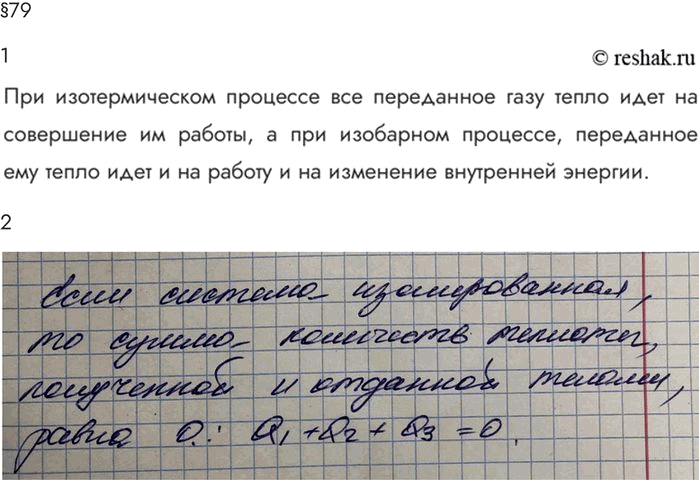 §79
1
© reshak.ru
При изотермическом процессе все переданное газу тепло идет на
совершение им работы, а при изобарном процессе, переданное
ему тепло идет и на работу и на изменение внутренней энергии.
2
Если система изолированная,
то сумма количеств теплоты,
полученной и отданной телами,
равна 0: Q₁ + Q₂ + Q₃ = 0.